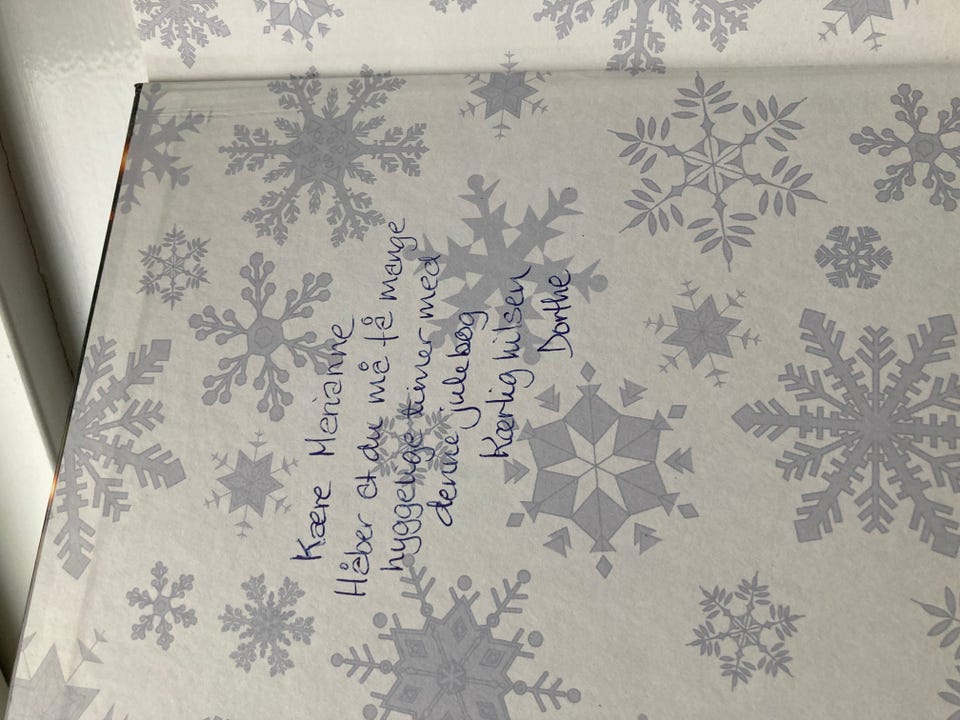 Kære Marianne
Håber at du må få mange
hyggelige timer med
denne julebog
Kærlig hilsen
Dorthe